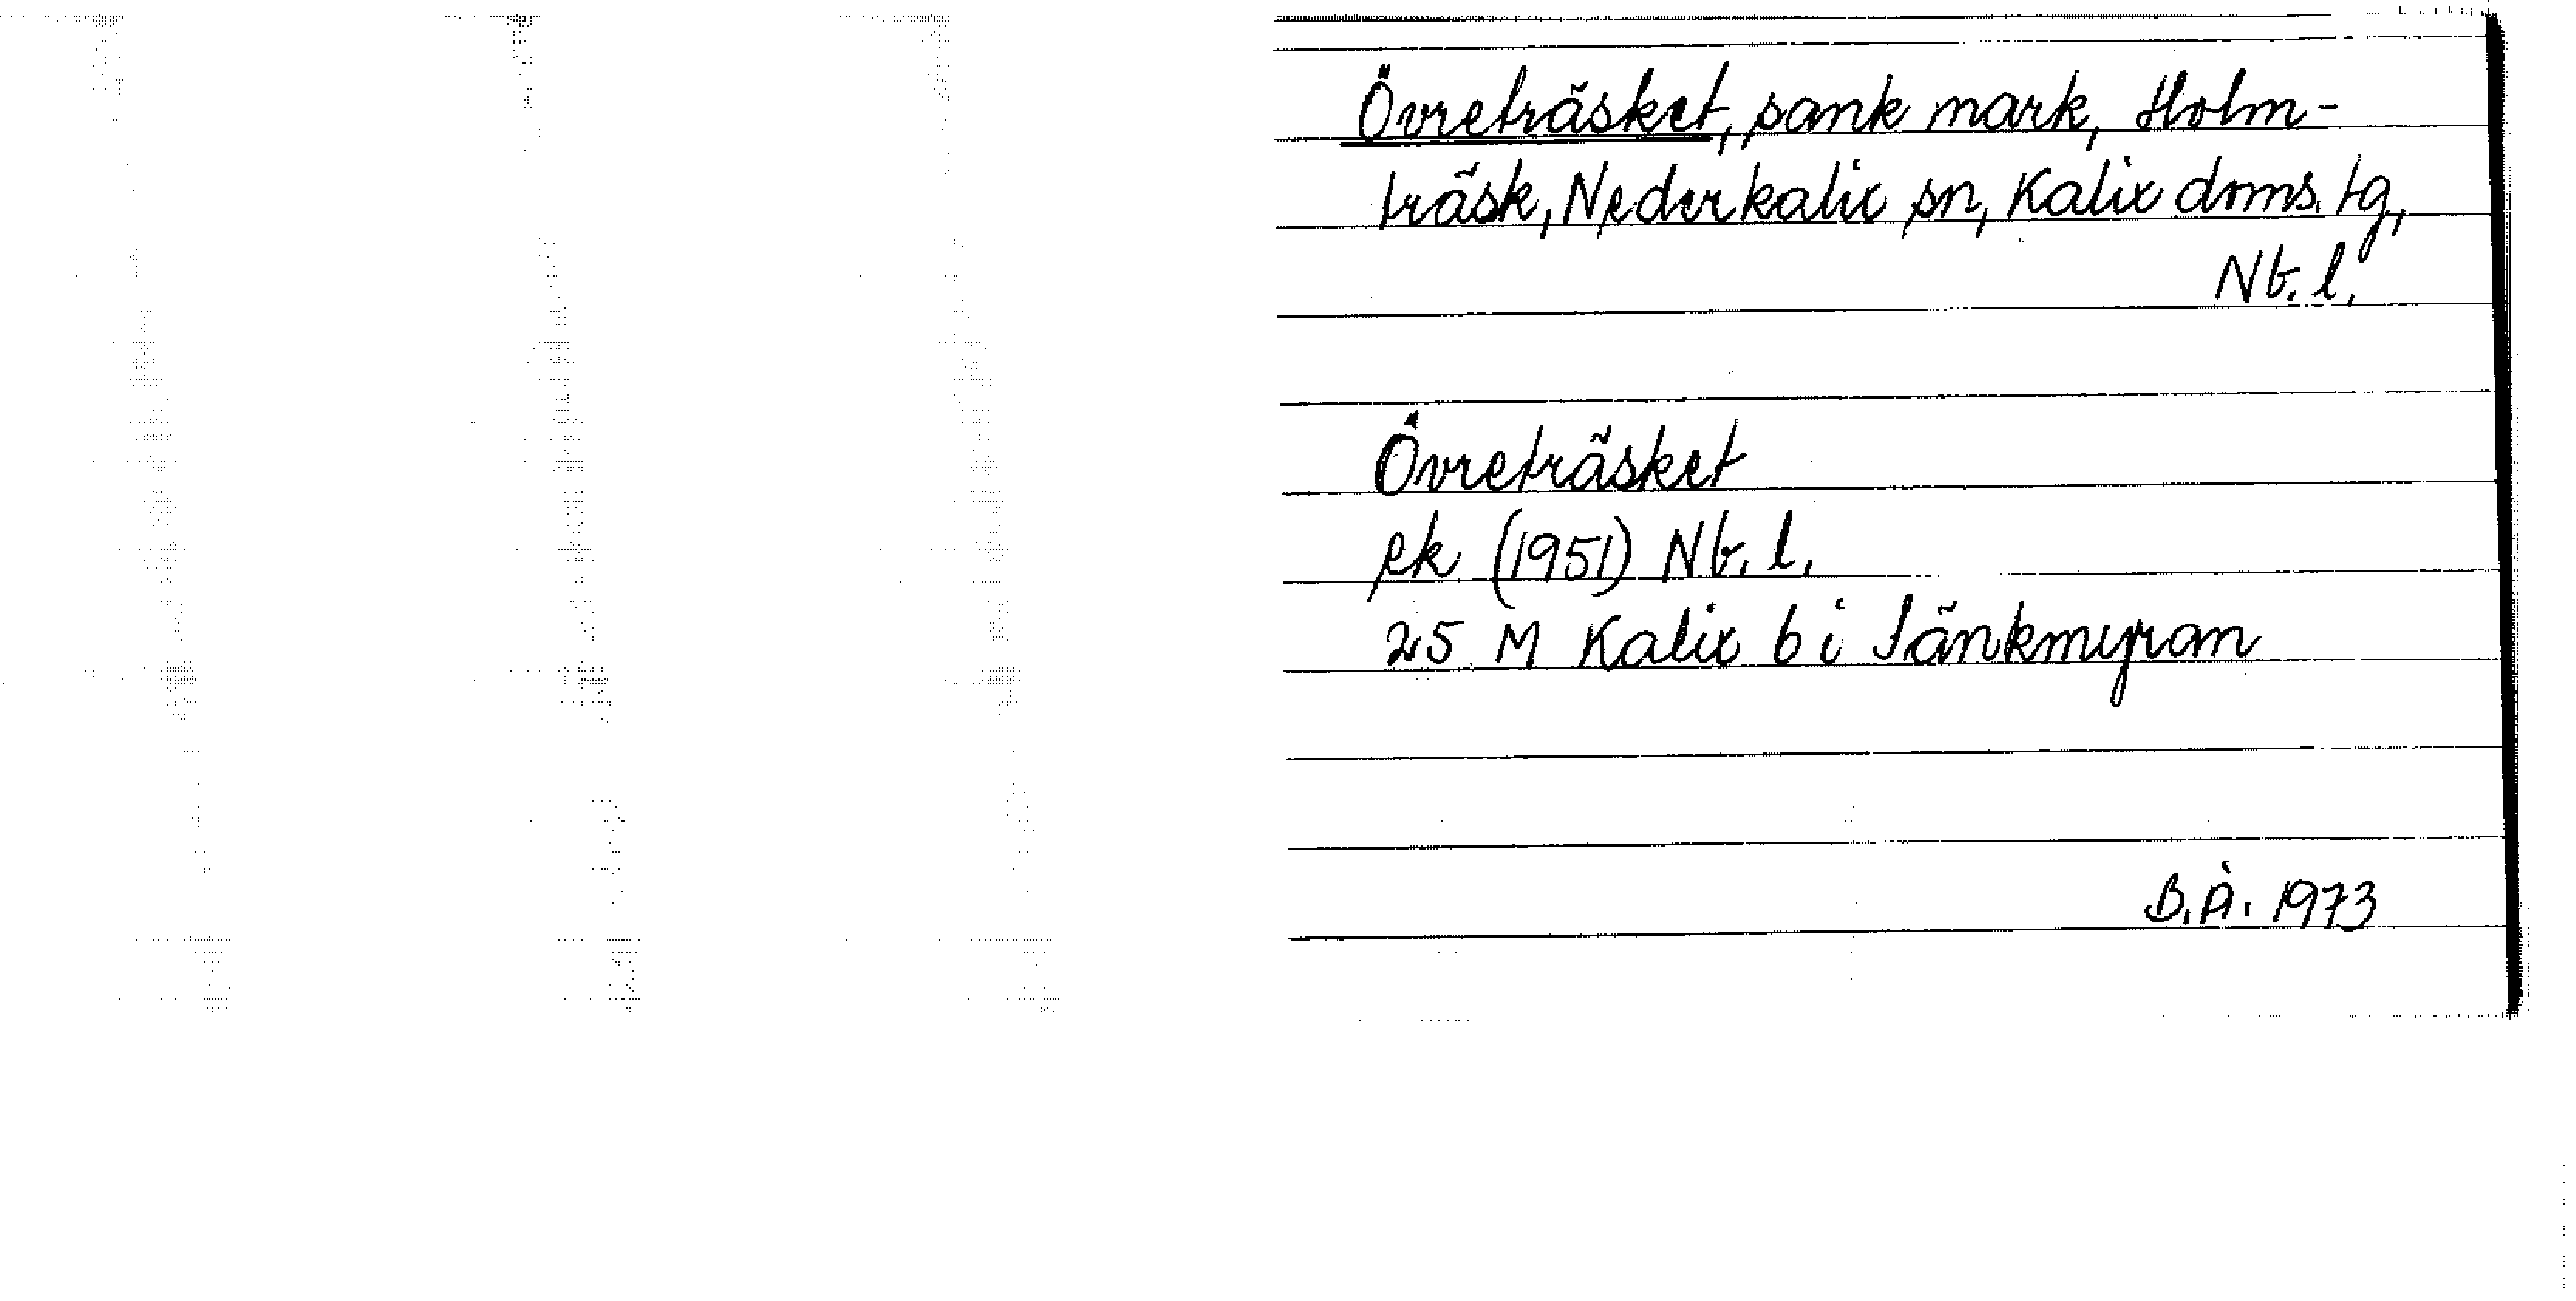 Övreträsket, sank mark, Holm-
träsk, Nederkalix sn, Kalix doms. tg,
Nb. l.
Övreträsket
ek (1951) Nb. l.
25 M Kalix 6 i Sänkmyran
B.Å. 1973